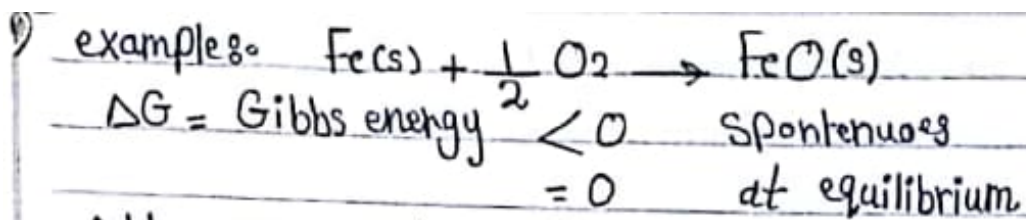 examples:- Fe(s) + 1/2 O2 → FeO(s)
ΔG = Gibbs energy < 0 Spontenuoes
= 0 at equilibrium